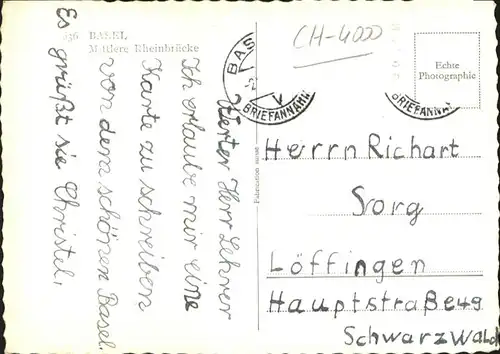 236 BASEL,
Mittlere Rheinbrücke
Werter Herr Lehrer
Ich erlaube mir eine
Karte zu schreiben
von dem schönen Basel.
Es grüßt sie Christel,
BAS
BRIEFANNAHM
BRIEFANNA
CH-4000
Echte
Photographie
Herrn Richart
Sorg
Löffingen
Hauptstraße 49
Schwarzwald